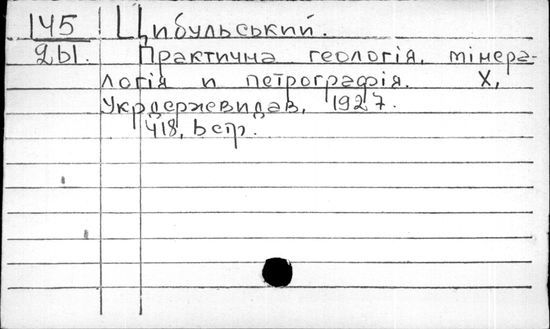 145 Цибульський.
2Ы. Практична геологія, мінера-
логія и петрографія. Х,
Укрдержвидав, 1927.
418, Ь стр.